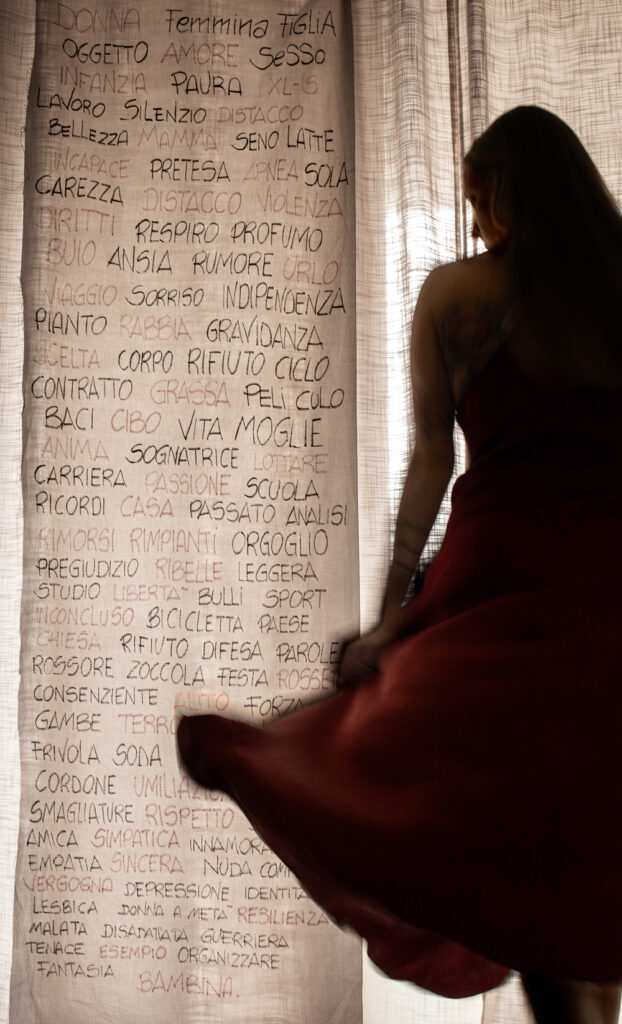 DONNA Femmina FIGLIA
OGGETTO AMORE SeSSo
INFANZIA PAURA XL-S
LAVORO SILENZIO DISTACCO
BELLEZZA MAMMA SENO LATTE
INCAPACE PRETESA APNEA SOLA
CAREZZA DISTACCO VIOLENZA
DIRITTI RESPIRO PROFUMO
BUIO ANSIA RUMORE URLO
VIAGGIO SORRISO INDIPENDENZA
PIANTO RABBIA GRAVIDANZA
SCELTA CORPO RIFIUTO CICLO
CONTRATTO GRASSA PELI CULO
BACI CIBO VITA MOGLIE
ANIMA SOGNATRICE LOTTARE
CARRIERA PASSIONE SCUOLA
RICORDI CASA PASSATO ANALISI
RIMORSI RIMPIANTI ORGOGLIO
PREGIUDIZIO RIBELLE LEGGERA
STUDIO LIBERTA' BULLI SPORT
INCONCLUSO BICICLETTA PAESE
CHIESA RIFIUTO DIFESA PAROLE
ROSSORE ZOCCOLA FESTA ROSSET
CONSENZIENTE ALITO FORZA
GAMBE TERRO
FRIVOLA SODA
CORDONE UMILIAZIO
SMAGLIATURE RISPETTO
AMICA SIMPATICA INNAMORA
EMPATIA SINCERA NUDA COM
VERGOGNA DEPRESSIONE IDENTITA
LESBICA DONNA A META' RESILIENZA
MALATA DISADATTATA GUERRIERA
TENACE ESEMPIO ORGANIZZARE
FANTASIA BAMBINA.